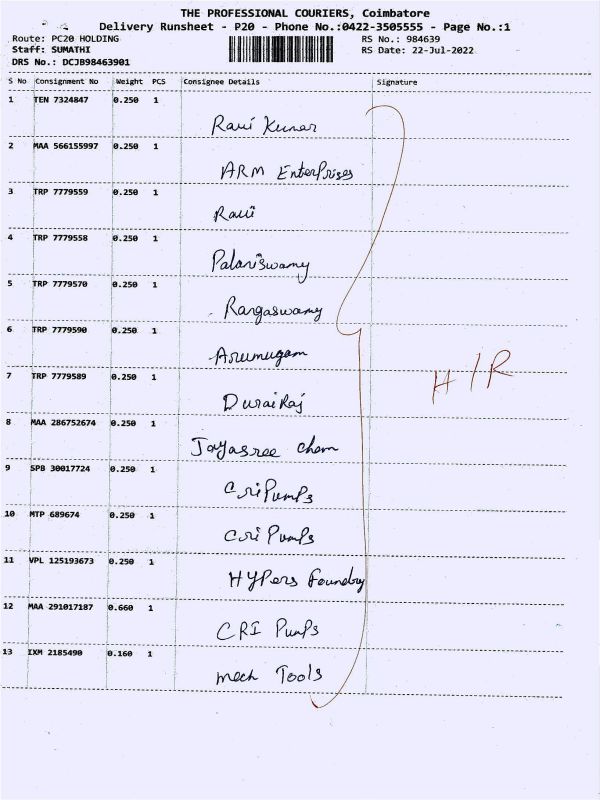 THE PROFESSIONAL COURIERS, Coimbatore
Delivery Runsheet - P20 - Phone No.:0422-3505555 - Page No.:1
Route: PC20 HOLDING RS No.: 984639
Staff: SUMATHI RS Date: 22-Jul-2022
DRS No.: DCJB98463901
S No Consignment No Weight PCS Consignee Details Signature
1 TEN 7324847 0.250 1
Ravi Kumar
2 MAA 566155997 0.250 1
ARM Enterprises
3 TRP 7779559 0.250 1
Ravi
4 TRP 7779558 0.250 1
Palaniswamy
5 TRP 7779570 0.250 1
Rangaswamy
6 TRP 7779590 0.250 1
Arumugam
7 TRP 7779589 0.250 1
DuraiRaj
8 MAA 286752674 0.250 1
Jayasree chem
9 SPB 30017724 0.250 1
Cri Pumps
10 MTP 689674 0.250 1
Cri Pumps
11 VPL 125193673 0.250 1
HYPers Foundry
12 MAA 291017187 0.660 1
CRI Pumps
13 IXM 2185490 0.160 1
mech Tools
H/R